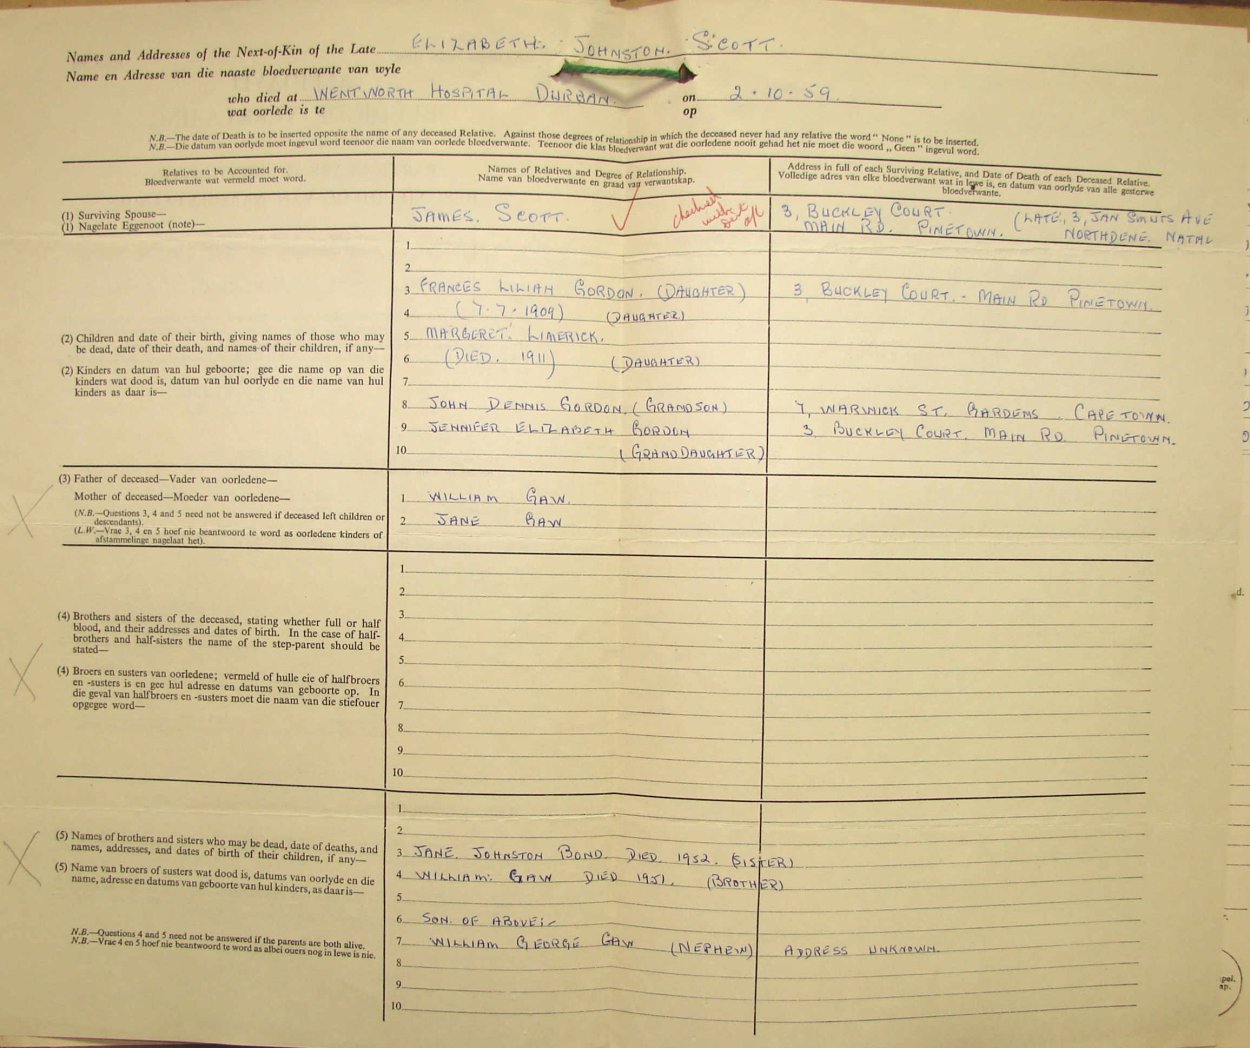 Names and Addresses of the Next-of-Kin of the Late ELIZABETH. JOHNSTON. SCOTT.
Name en Adresse van die naaste bloedverwante van wyle
who died at WENTWORTH HOSPITAL DURBAN. on 2.10.59.
wat oorlede is te op
N.B.—The date of Death is to be inserted opposite the name of any deceased Relative. Against those degrees of relationship in which the deceased never had any relative the word "None" is to be inserted.
N.B.—Die datum van oorlyde moet ingevul word teenoor die naam van oorlede bloedverwante. Teenoor die klas bloedverwant wat die oorledene nooit gehad het nie moet die woord „Geen" ingevul word.
Relatives to be Accounted for.
Bloedverwante wat vermeld moet word.
Names of Relatives and Degree of Relationship.
Name van bloedverwante en graad van verwantskap.
Address in full of each Surviving Relative, and Date of Death of each Deceased Relative.
Volledige adres van elke bloedverwant wat in lewe is, en datum van oorlyde van alle gesterwe
bloedverwante.
(1) Surviving Spouse—
(1) Nagelate Eggenoot (note)—
JAMES. SCOTT.
checked
3, BUCKLEY COURT. (LATE, 3, JAN SMUTS AVE
MAIN RD. PINETOWN. NORTHDENE. NATAL
(2) Children and date of their birth, giving names of those who may
be dead, date of their death, and names of their children, if any—
(2) Kinders en datum van hul geboorte; gee die name op van die
kinders wat dood is, datum van hul oorlyde en die name van hul
kinders as daar is—
1
2
3 FRANCES LILIAN GORDON. (DAUGHTER) 3, BUCKLEY COURT. - MAIN RD PINETOWN.
4 (7.7.1909) (DAUGHTER)
5 MARGERET. LIMERICK.
6 (DIED. 1911) (DAUGHTER)
7
8 JOHN DENNIS GORDON. (GRANDSON) 7, WARWICK ST. GARDENS. CAPETOWN.
9 JENNIFER ELIZABETH GORDON 3 BUCKLEY COURT. MAIN RD PINETOWN.
10 (GRANDDAUGHTER)
(3) Father of deceased—Vader van oorledene—
Mother of deceased—Moeder van oorledene—
(N.B.—Questions 3, 4 and 5 need not be answered if deceased left children or
descendants).
(L.W.—Vrae 3, 4 en 5 hoef nie beantwoord te word as oorledene kinders of
afstammelinge nagelaat het).
1 WILLIAM GAW.
2 JANE GAW
(4) Brothers and sisters of the deceased, stating whether full or half
blood, and their addresses and dates of birth. In the case of half-
brothers and half-sisters the name of the step-parent should be
stated—
(4) Broers en susters van oorledene; vermeld of hulle eie of halfbroers
en -susters is en gee hul adresse en datums van geboorte op. In
die geval van halfbroers en -susters moet die naam van die stiefouer
opgegee word—
1
2
3
4
5
6
7
8
9
10
(5) Names of brothers and sisters who may be dead, date of deaths, and
names, addresses, and dates of birth of their children, if any—
(5) Name van broers of susters wat dood is, datums van oorlyde en die
name, adresse en datums van geboorte van hul kinders, as daar is—
N.B.—Questions 4 and 5 need not be answered if the parents are both alive.
N.B.—Vrae 4 en 5 hoef nie beantwoord te word as albei ouers nog in lewe is nie.
1
2
3 JANE. JOHNSTON BOND. DIED. 1952. (SISTER)
4 WILLIAM. GAW DIED 1951. (BROTHER)
5
6 SON. OF ABOVE:-
7 WILLIAM GEORGE GAW (NEPHEW) ADDRESS UNKNOWN.
8
9
10